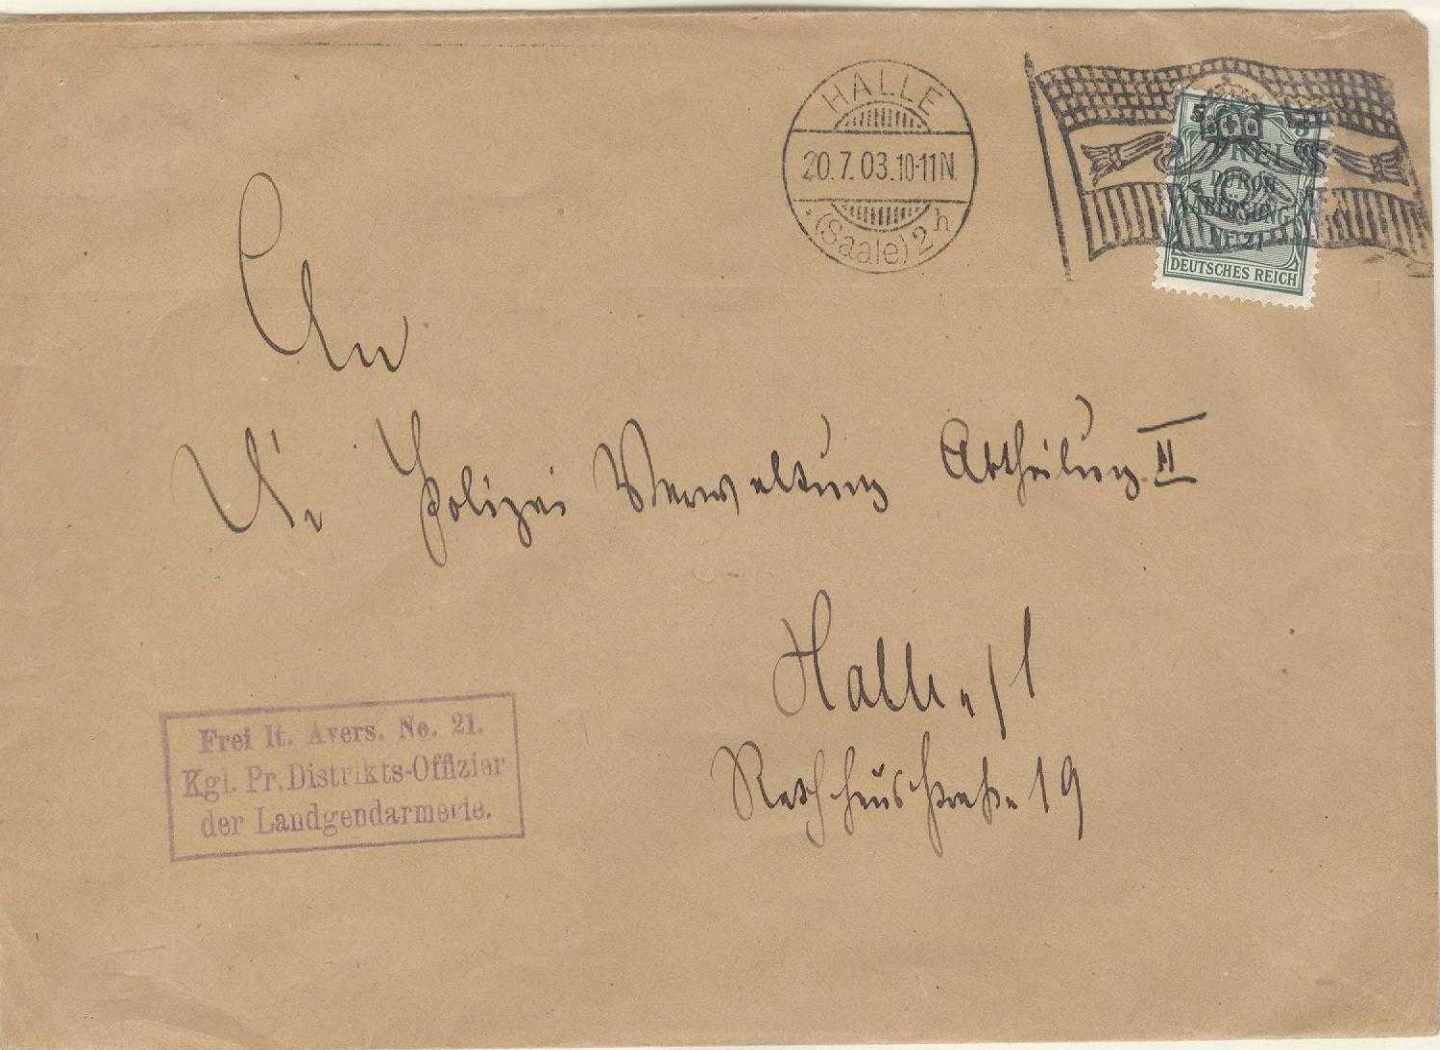 HALLE
20.7.03.10-11N.
(Saale) 2 h
5 5
FREI
DURCH
ABLÖSUNG
Nr. 21
DEUTSCHES REICH
An
die Polizei Verwaltung Abtheilung II
Halle a/S
Rathhausstraße 19
Frei lt. Avers. No. 21.
Kgl. Pr. Distrikts-Offizier
der Landgendarmerie.